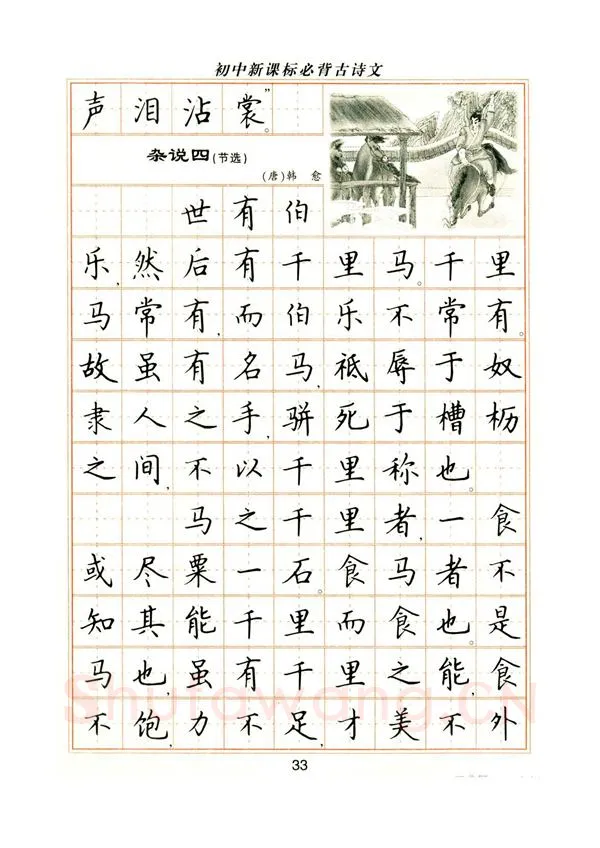 初中新课标必背古诗文
声泪沾裳。”
杂说四(节选)
(唐)韩 愈
世有伯
乐,然后有千里马。千里
马常有,而伯乐不常有。
故虽有名马,祗辱于奴
隶人之手,骈死于槽枥
之间,不以千里称也。
马之千里者,一食
或尽粟一石。食马者不
知其能千里而食也。是
马也,虽有千里之能,食
不饱,力不足,才美不外
Shufawang.CN
33